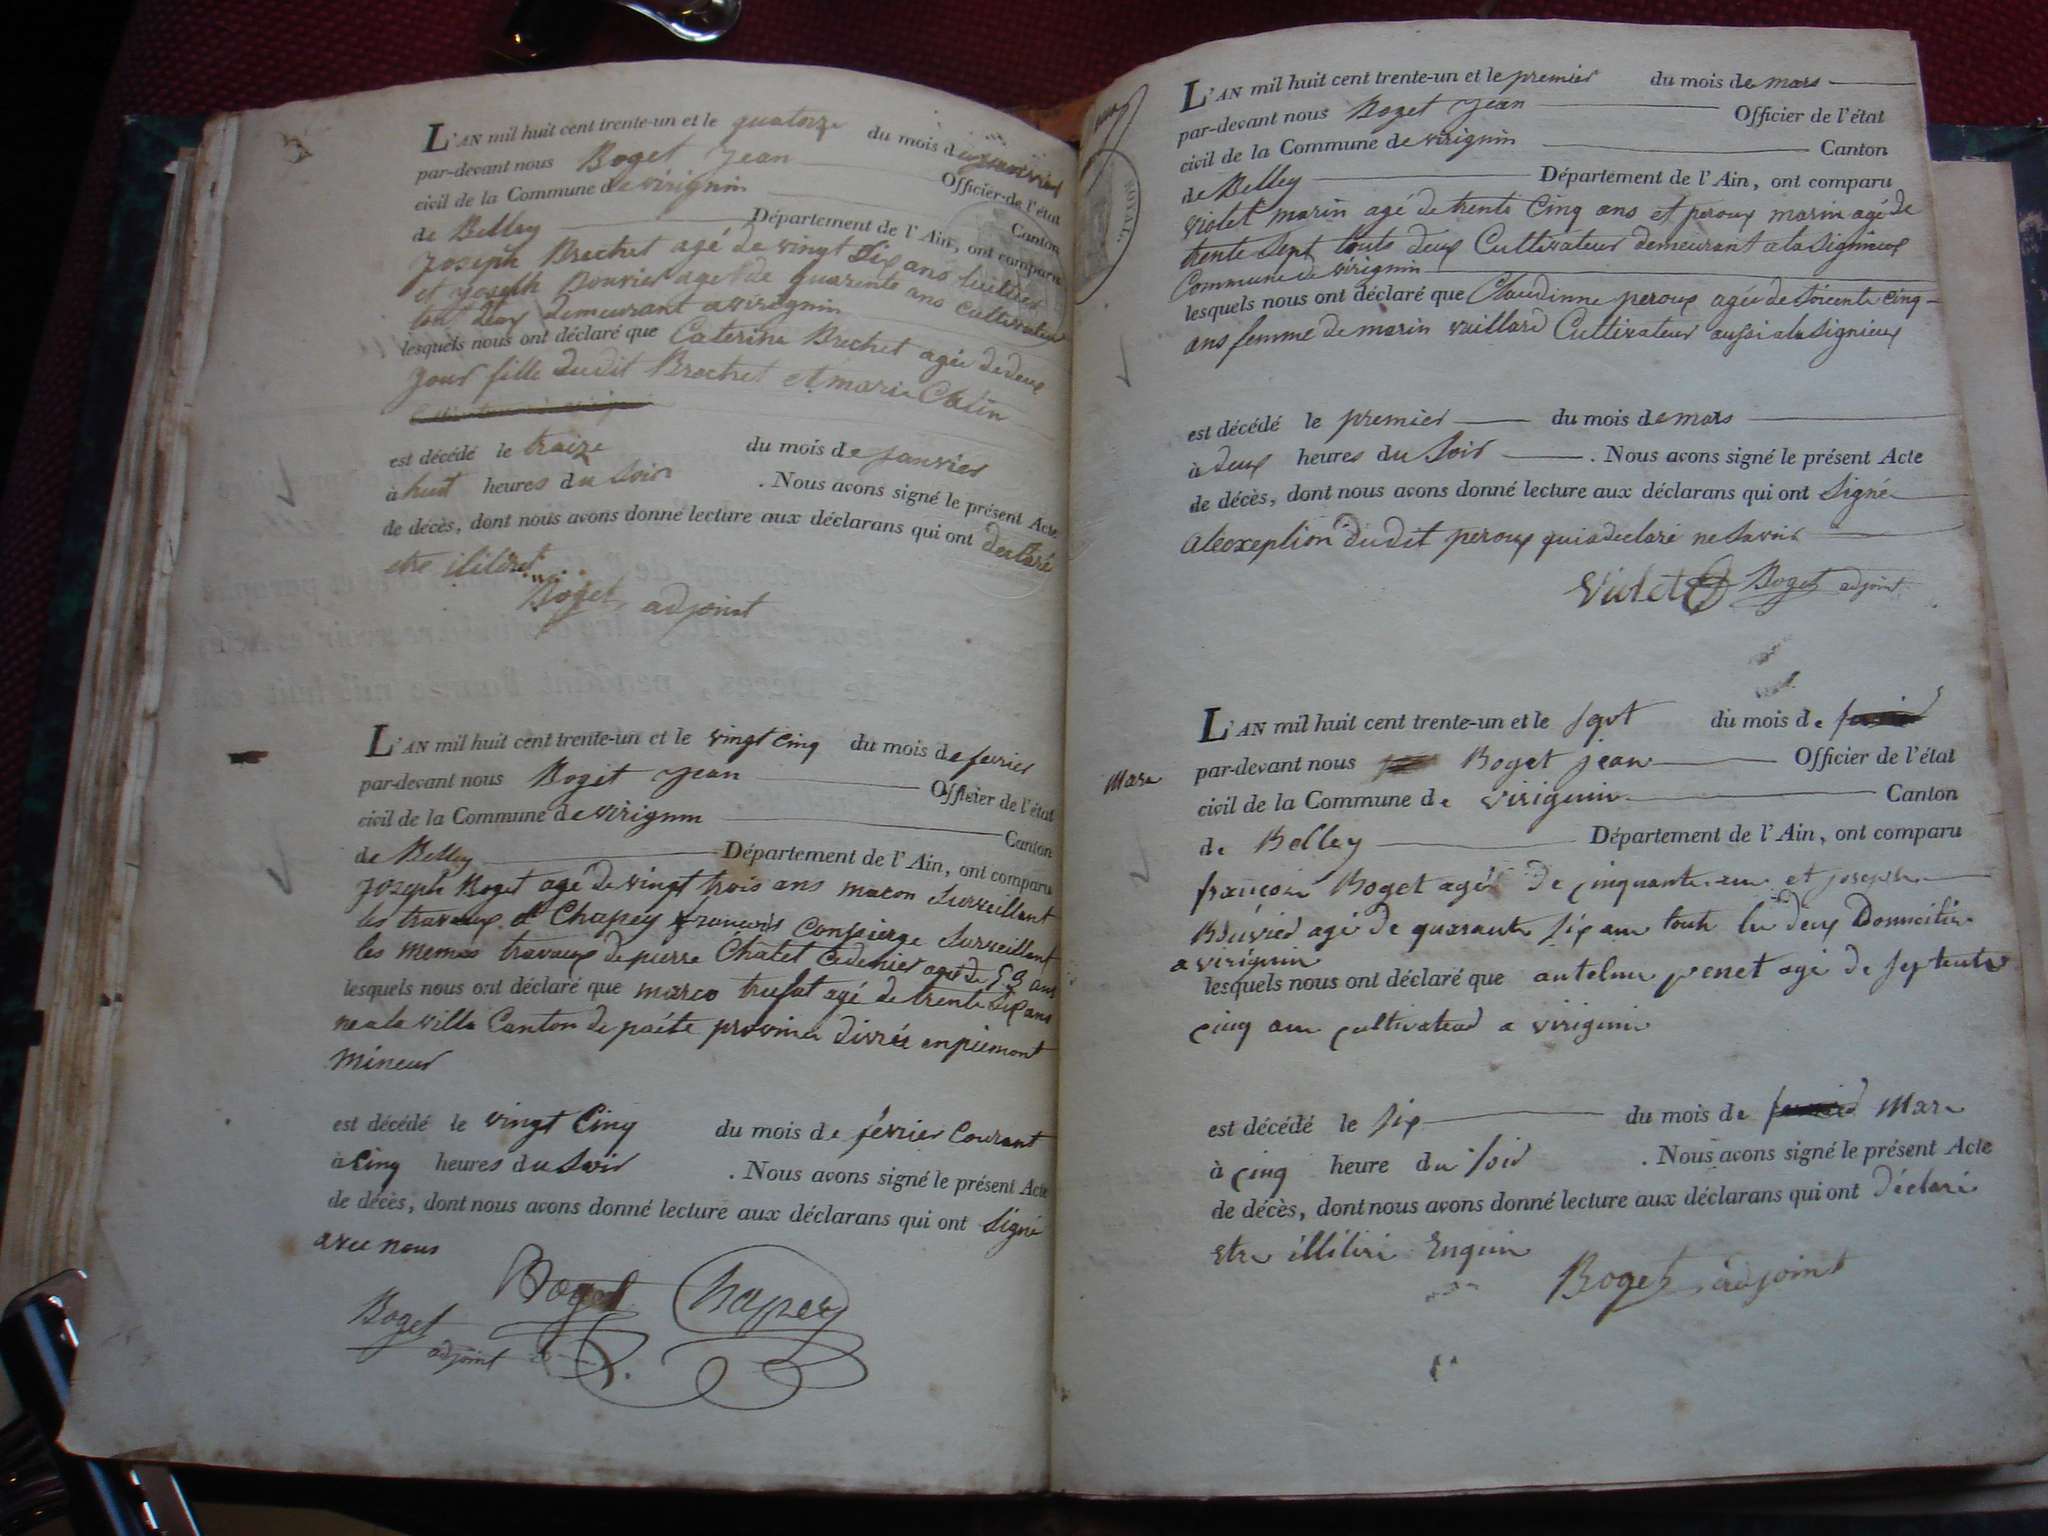 L'AN mil huit cent trente-un et le quatorze du mois de janvier
par-devant nous Boget Jean Officier de l'état
civil de la Commune de virignin Canton
de Belley Département de l'Ain, ont comparu
Joseph Brechet agé de vingt six ans
et joseph Bouvier agé de quarente ans cultivateur
tout deux demeurant a virignin
lesquels nous ont déclaré que Caterine Brechet agée de deux
jour fille du dit Brechet et marie
est décédé le traize du mois de janvier
à huit heures du soir . Nous avons signé le présent Acte
de décès, dont nous avons donné lecture aux déclarans qui ont declaré
etre
Boget adjoint
L'AN mil huit cent trente-un et le vingt cinq du mois de fevrier
par-devant nous Boget Jean Officier de l'état
civil de la Commune de virignin Canton
de Belley Département de l'Ain, ont comparu
Joseph Boget agé de vingt trois ans macon surveillant
les travaux et Chapey francois Consierge surveillant
les memes travaux de pierre Chatel agé de 53 ans
lesquels nous ont déclaré que marco trufat agé de trente six ans
ne a la villa Canton de province divrée en piemont
mineur
est décédé le vingt cinq du mois de février courant
à cinq heures du soir . Nous avons signé le présent Acte
de décès, dont nous avons donné lecture aux déclarans qui ont signé
avec nous
Boget Chapey
Boget
adjoint
ROYAL
L'AN mil huit cent trente-un et le premier du mois de mars
par-devant nous Boget Jean Officier de l'état
civil de la Commune de virignin Canton
de Belley Département de l'Ain, ont comparu
violet marin agé de trente cinq ans et peroux marin agé de
trente sept touts deux Cultivateur demeurant a la signieux
Commune de virignin
lesquels nous ont déclaré que Claudinne peroux agée de soicente cinq
ans femme de marin vuillard Cultivateur aussi a la signieux
est décédé le premier du mois de mars
à deux heures du soir . Nous avons signé le présent Acte
de décès, dont nous avons donné lecture aux déclarans qui ont signé
a leoxeption du dit peroux qui a declaré ne savoir
Violet Boget adjoint
L'AN mil huit cent trente-un et le sept du mois de
mars
par-devant nous Boget jean Officier de l'état
civil de la Commune de virignin Canton
de Belley Département de l'Ain, ont comparu
françois Boget agé de cinquante et joseph
Bouvier agé de quarante six ans tout les deux Domicilié
a virignin
lesquels nous ont déclaré que antelme penet agé de septente
cinq ans cultivateur a virignin
est décédé le six du mois de mars
à cinq heure du soir . Nous avons signé le présent Acte
de décès, dont nous avons donné lecture aux déclarans qui ont déclaré
etre illitéré
Boget adjoint